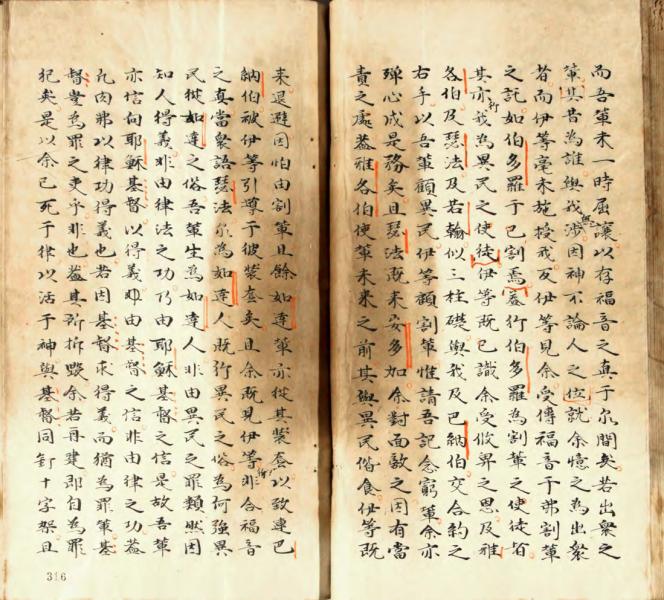 而吾輩未一時屈讓以存福音之真于尔間矣若出衆之
輩其昔為誰與我無涉因神不論人之位就余憶之為出衆
者而伊等毫未施授我反伊等見余受傳福音于弗割輩
之託如伯多羅于已割焉蓋行伯多羅為割輩之使徒皆
其亦行我為異民之使徒伊等既已識余受攸畀之恩及雅
各伯及瑟法及若翰似三柱礎與我及巴納伯交合約之
右手以吾輩顧異民伊等顧割輩惟請吾記念窮輩余亦
殫心成是務矣且瑟法既来安多加余對面敵之因有當
責之處蓋雅各伯使輩未来之前其與異民偕食伊等既
来退避因怕由割輩且餘如達輩亦從其裝套以致連巴
納伯被伊等引導于彼裝套矣且余既見伊等非行合福音
之真當衆語瑟法尔為如達人既行異民之俗為何強異
民從如達之俗吾輩生為如達人非由異民之罪類然因
知人得義非由律法之功乃由耶穌基督之信是故吾輩
亦信向耶穌基督以得義即由基督之信非由律之功蓋
凡肉弗以律功得義也若因基督求得義而猶為罪輩基
督豈為罪之吏乎非也蓋其所拆毀余若再建即自為罪
犯矣是以余已死于律以活于神與基督同釘十字架且
316